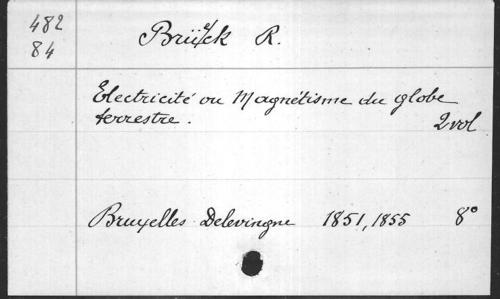 482
84
Brück R.
Electricité ou Magnétisme du globe
terrestre.
2 vol
Bruxelles Delevingne 1851, 1855 8°